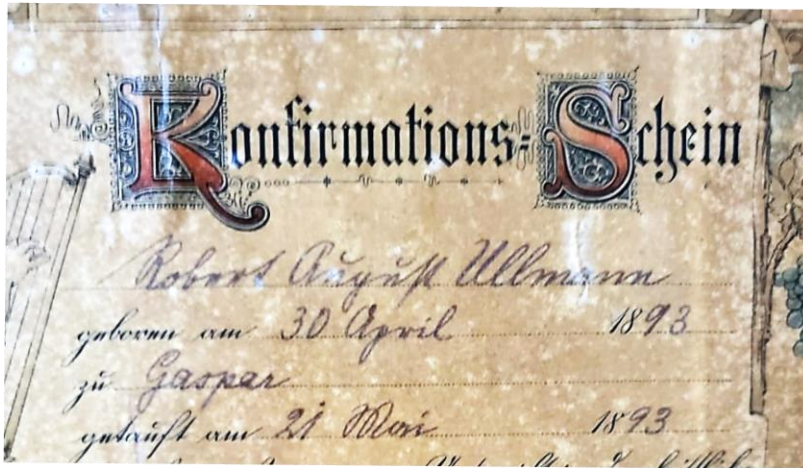 Konfirmations-Schein
Robert August Ullmann
geboren am 30 April 1893
zu Gaspar
getauft am 21 Mai 1893